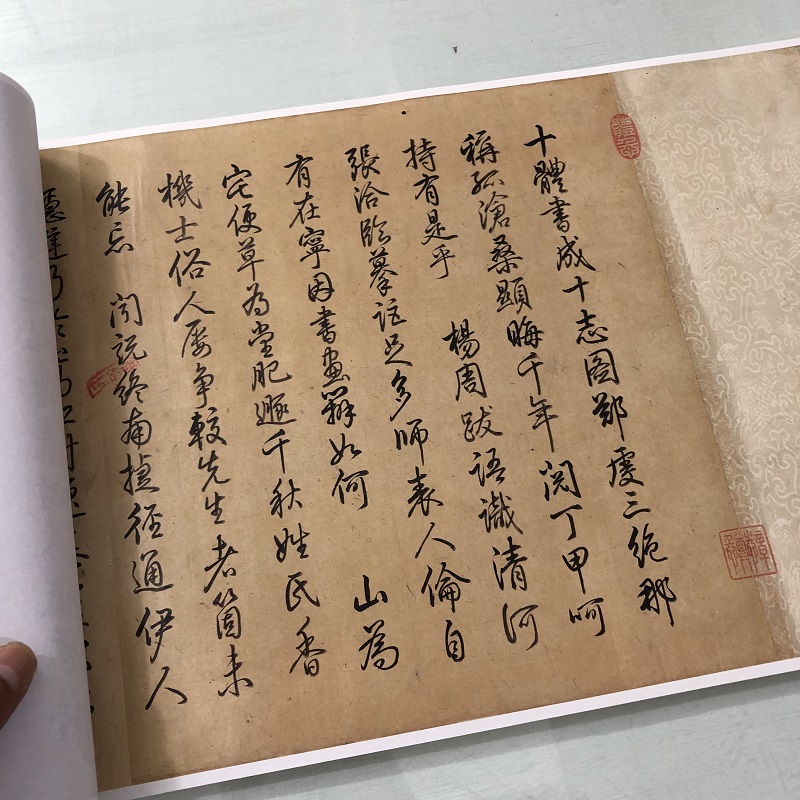 十體書成十志圖鄭虔三絕那
稱孤滄桑顯晦千年閱丁甲呵
持有是乎 楊周跋語識清河
張洽臨摹詎足多師表人倫自
有在寧因書畫辨如何 山為
宅便草為堂肥遯千秋姓氏香
機士俗人屡爭較先生者箇未
能忘 聞說終南捷徑通伊人